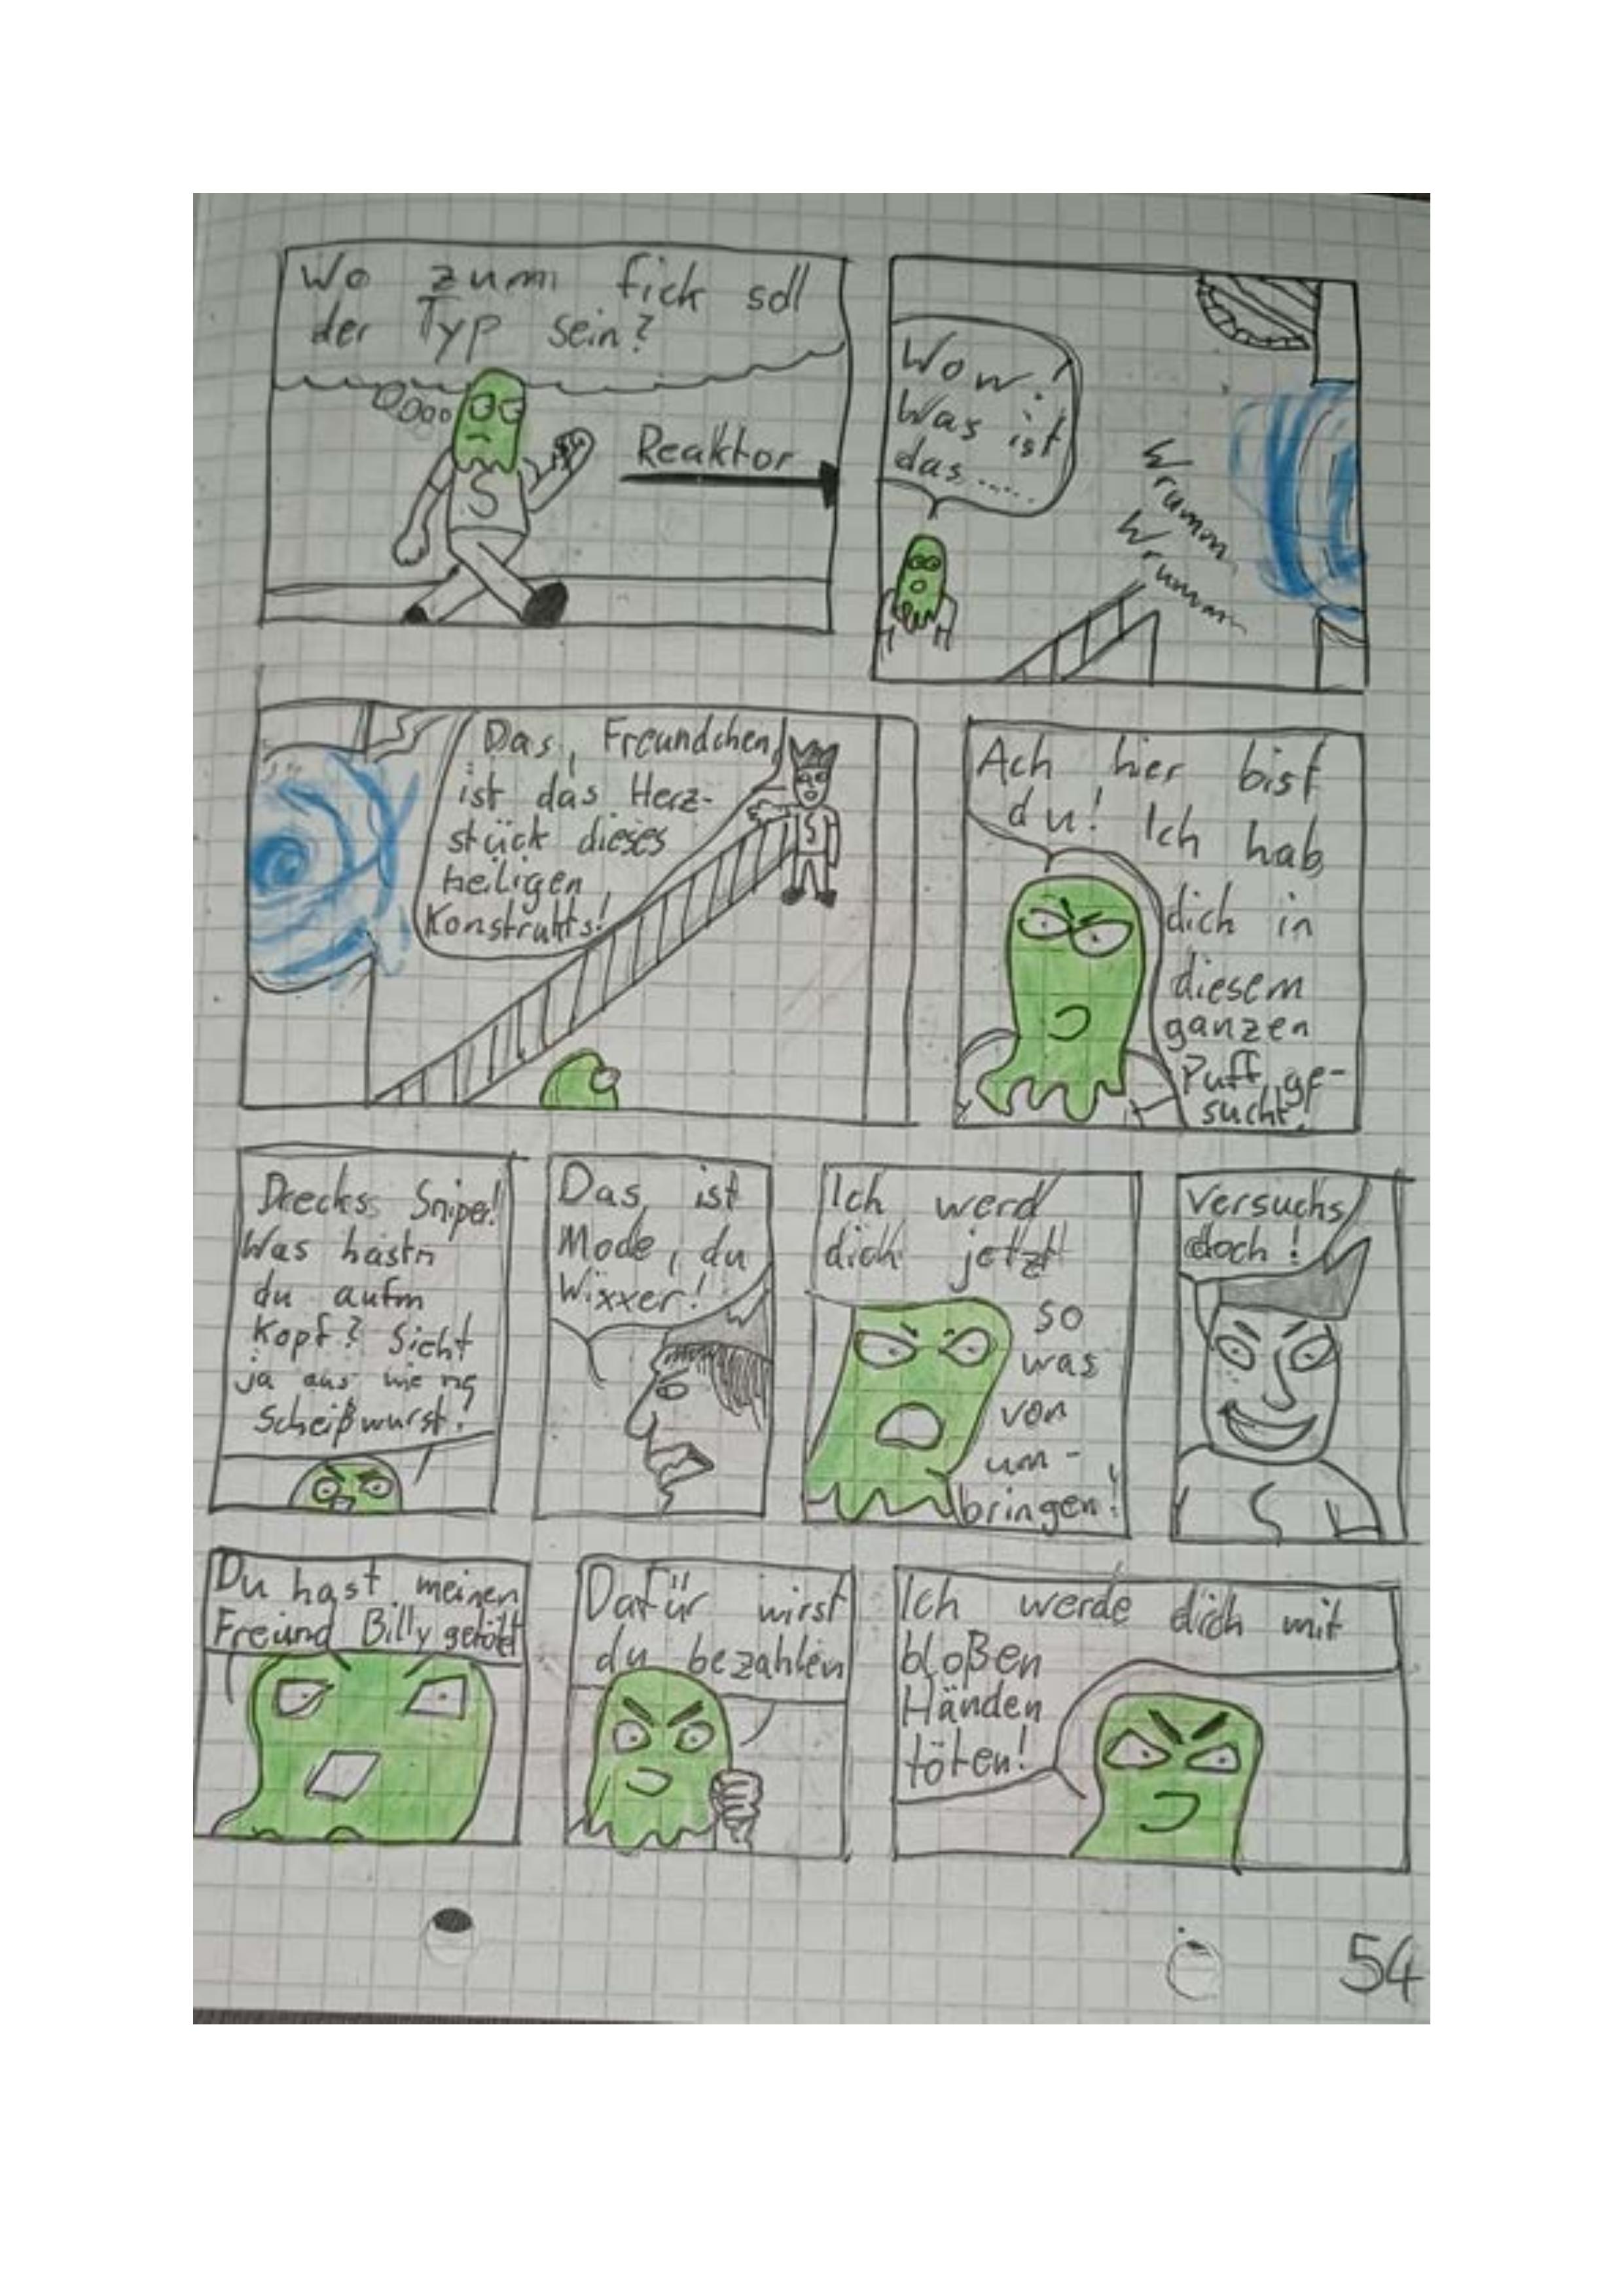 Wo zum fick soll
der Typ sein?
S
Reaktor
Wow!
Was ist
das......
Wrumm
Wrumm
Das, Freundchen,
ist das Herz-
stück dieses
heiligen
Konstrukts!
S
Ach hier bist
du! Ich hab
dich in
diesem
ganzen
Puff ge-
sucht!
Drecks Sniper!
Was hastn
du aufm
Kopf? Sieht
ja aus wie ne
Scheißwurst!
Das ist
Mode, du
Wixxer!
Ich werd
dich jetzt
so
was
von
um-
bringen!
Versuchs
doch!
S
Du hast meinen
Freund Billy getötet
Dafür wirst
du bezahlen
Ich werde dich mit
bloßen
Händen
töten!
54